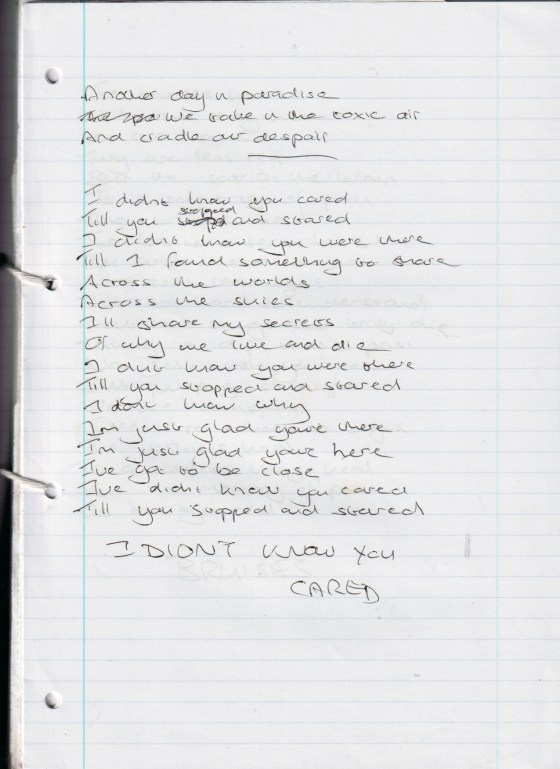 Another day n paradise
we take n the toxic air
And cradle our despair
I didnt know you cared
Till you stopped and stared
I didnt know you were there
Till I found something to share
Across the worlds
Across the skies
Ill share my secrets
Of why we live and die
I dint know you were there
Till you stopped and stared
I dont know why
Im just glad youre there
I'm just glad youre here
I've got to be close
Ive didnt know you cared
Till you stopped and stared
I DIDNT KNOW YOU
CARED
BRUISES